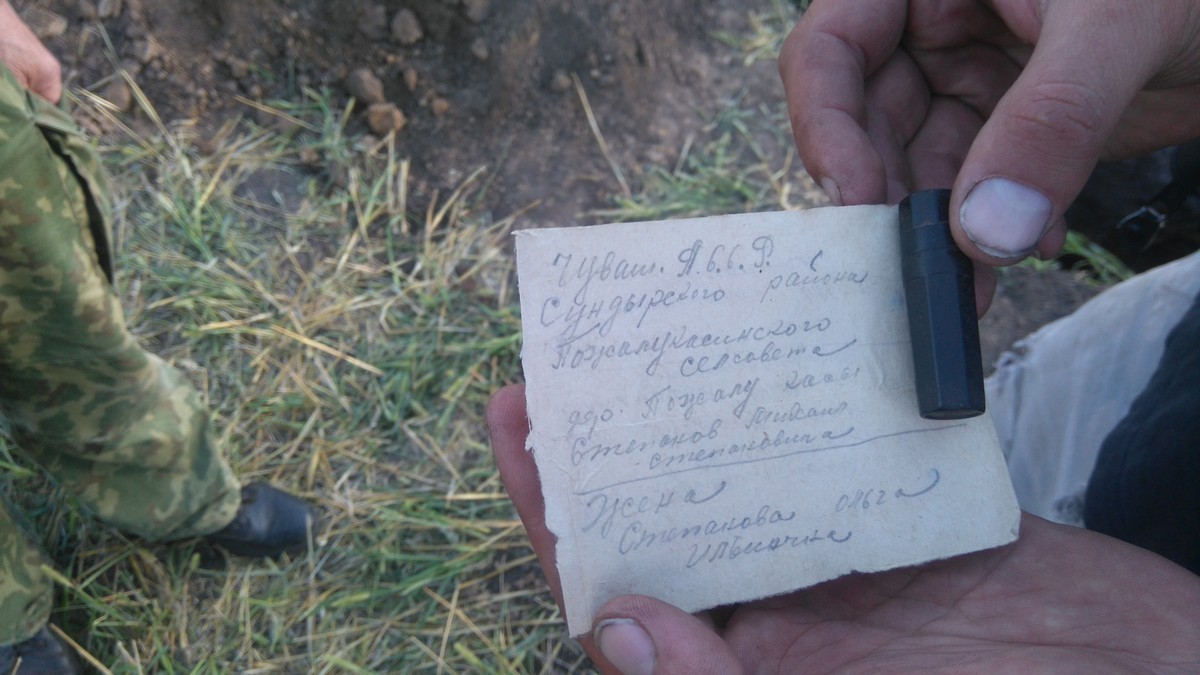 Чуваш. А.С.С.Р.
Сундырского района
Пожалукасинского
селсовета
дер. Пожалу касы
Степанов Михаил
степановича
Жена
Степанова Ольга
Ильинична